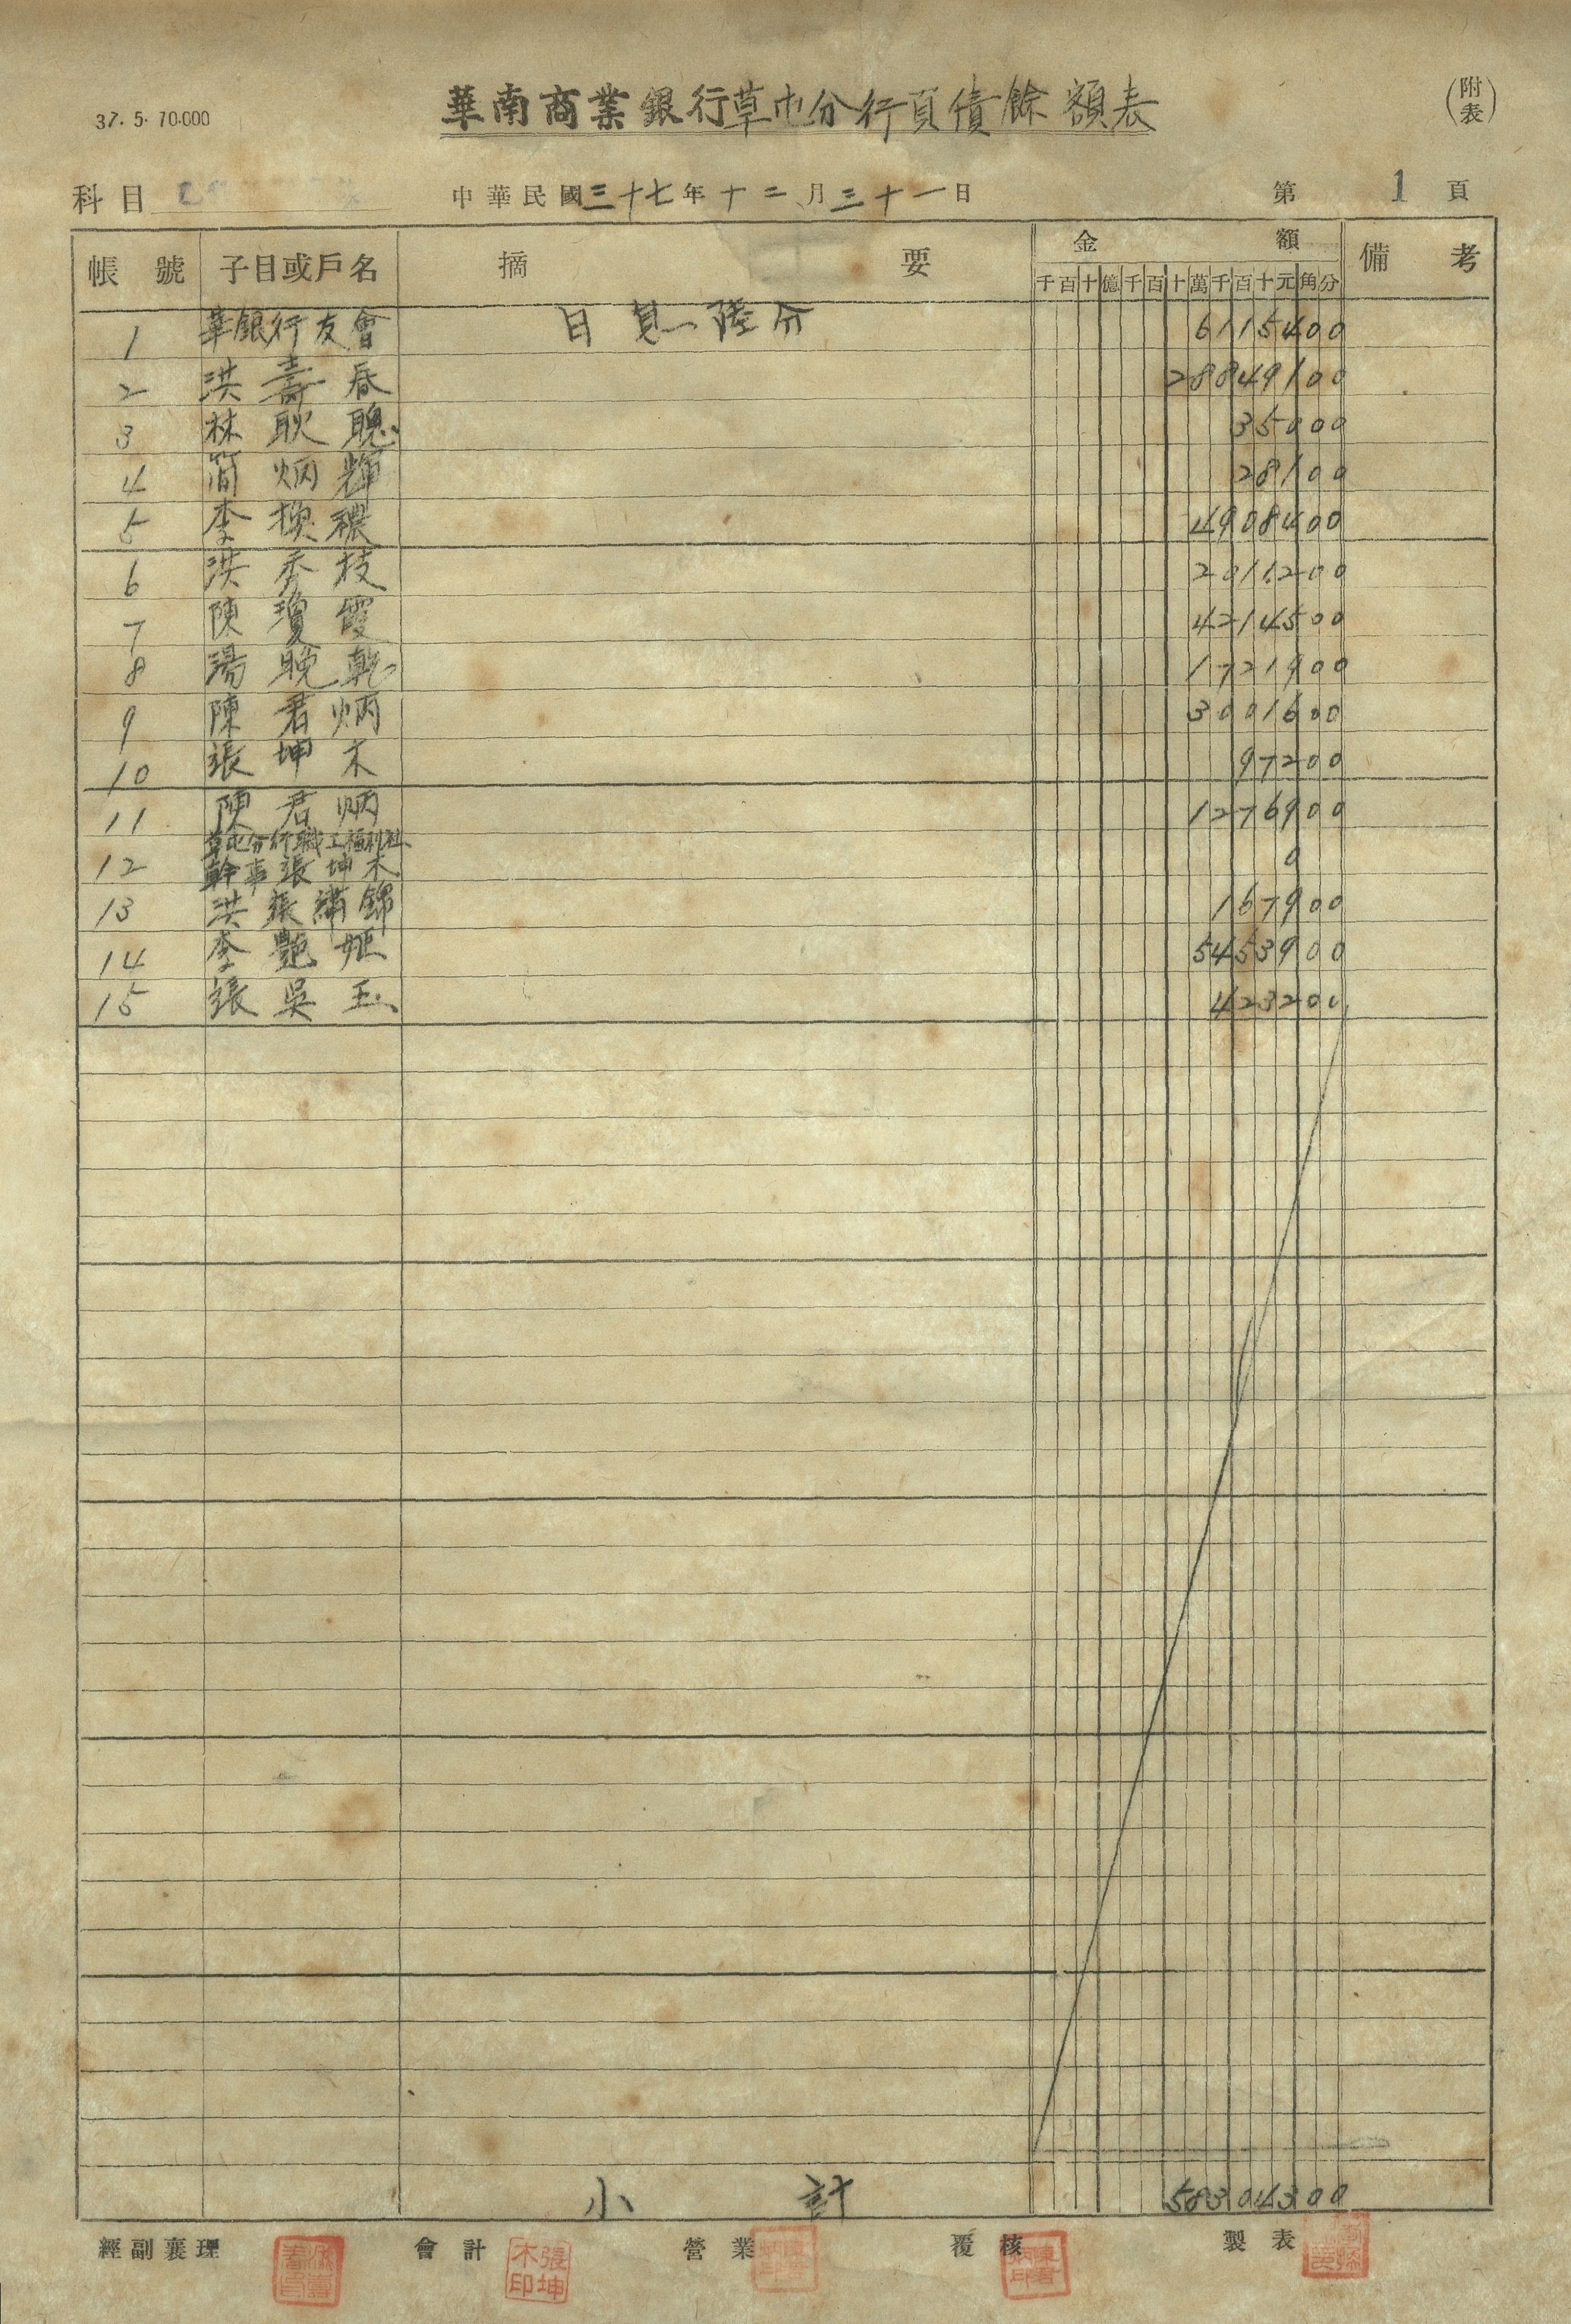 37. 5. 70.000
華南商業銀行草屯分行負債餘額表
(附表)
科目
中華民國三十七年十二月三十一日
第 1 頁
帳號 子目或戶名 摘要 金額 備考
千百十億千百十萬千百十元角分
1 華銀行友會 日息一陸分 6115400
2 洪壽春 28849100
3 林耿聰 35000
4 簡炳輝 28100
5 李換穠 4908400
6 洪秀枝 2011200
7 陳瓊霞 4214500
8 湯晚乾 1721900
9 陳君炳 3001600
10 張坤木 97200
11 陳君炳 1276900
12 草屯分行職工福利社
幹事張坤木 0
13 洪張繡錦 167900
14 李艷姃 5453900
15 張吳玉 423200
小計 58304300
經副襄理 會計 營業 覆核 製表
張坤木印